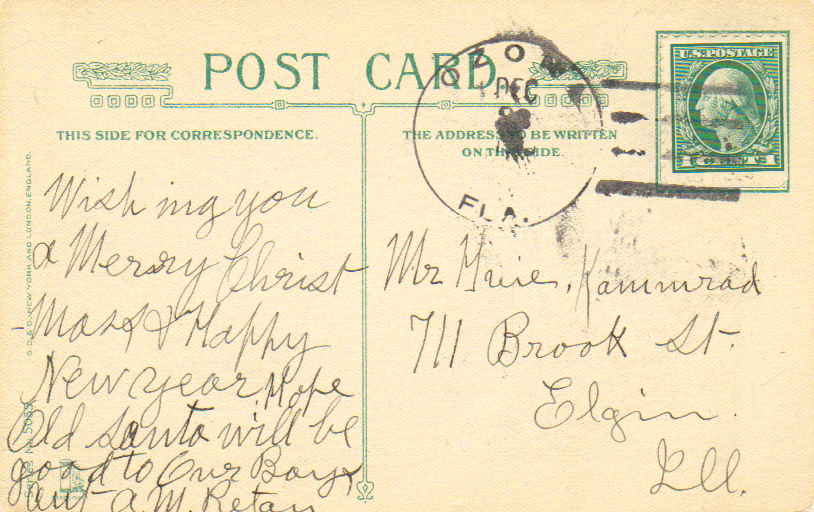 POST CARD
THIS SIDE FOR CORRESPONDENCE.
THE ADDRESS TO BE WRITTEN
ON THIS SIDE
OZONA
DEC
FLA.
U.S. POSTAGE
Wishing you
a Merry Christ
Mass & Happy
New year, Hope
Old Santa will be
good to Our Boys
Aunt A. M. Retan
Mr Kammrad
711 Brook St.
Elgin.
Ill.
NEW YORK AND LONDON, ENGLAND.